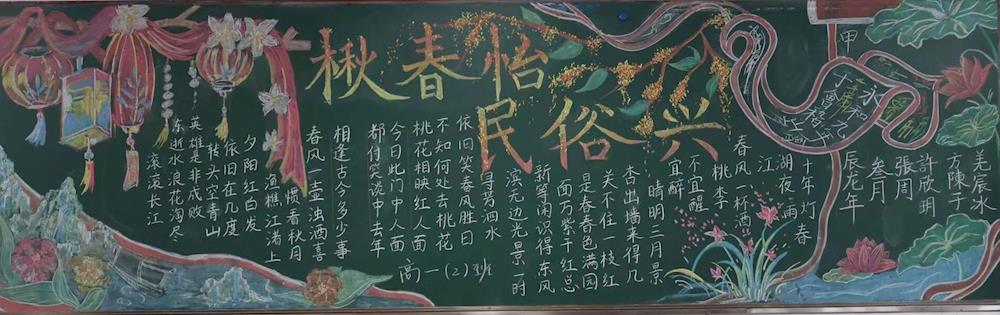 楸春怡
民俗兴
滚滚长江
东逝水浪花淘尽
英雄是非成败
转头空青山
依旧在几度
夕阳红白发
渔樵江渚上
惯看秋月
春风一壶浊酒喜
相逢古今多少事
都付笑谈中去年
今日此门中人面
桃花相映红人面
不知何处去桃花
依旧笑春风胜日
寻芳泗水
滨无边光景一时
新等闲识得东风
面万紫千红总
是春春色满园
关不住一枝红
杏出墙来得几
晴明三月景
宜醉
不宜醒
桃李
春风一杯酒
江
湖夜雨
十年灯春
甲
辰龙年
叁月
張周
許欣玥
方陳子
羌辰冰
永和
高一(2)班